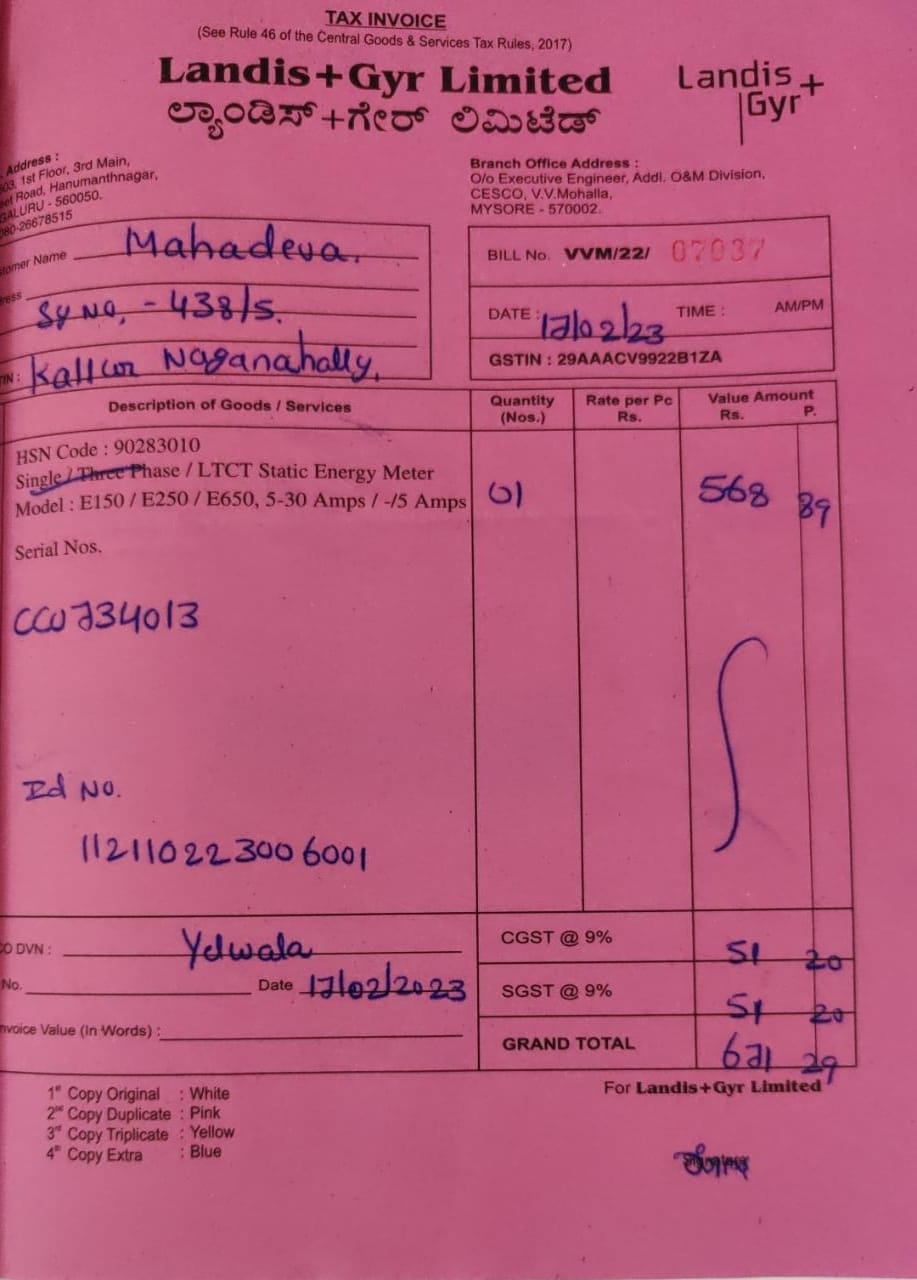 TAX INVOICE
(See Rule 46 of the Central Goods & Services Tax Rules, 2017)
Landis+Gyr Limited
ಲ್ಯಾಂಡಿಸ್+ಗೇರ್ ಲಿಮಿಟೆಡ್
Landis+
Gyr
Address :
1st Floor, 3rd Main,
Road, Hanumanthnagar,
GALURU - 560050.
080-26678515
Branch Office Address :
O/o Executive Engineer, Addl. O&M Division,
CESCO, V.V.Mohalla,
MYSORE - 570002.
tomer Name Mahadeva.
ress
Sy No, - 438/5.
IN : Kalloor Naganahally,
BILL No. VVM/22/ 07037
DATE : 17/02/23 TIME : AM/PM
GSTIN : 29AAACV9922B1ZA
Description of Goods / Services Quantity (Nos.) Rate per Pc Rs. Value Amount Rs. P.
HSN Code : 90283010
Single / Three Phase / LTCT Static Energy Meter
Model : E150 / E250 / E650, 5-30 Amps / -/5 Amps 01 568 89
Serial Nos.
CCW734013
Id No.
112110223006001
O DVN : Yelwala
No. Date 17/02/2023
nvoice Value (In Words) :
CGST @ 9% 51 20
SGST @ 9% 51 20
GRAND TOTAL 671 29
1st Copy Original : White
2nd Copy Duplicate : Pink
3rd Copy Triplicate : Yellow
4th Copy Extra : Blue
For Landis+Gyr Limited